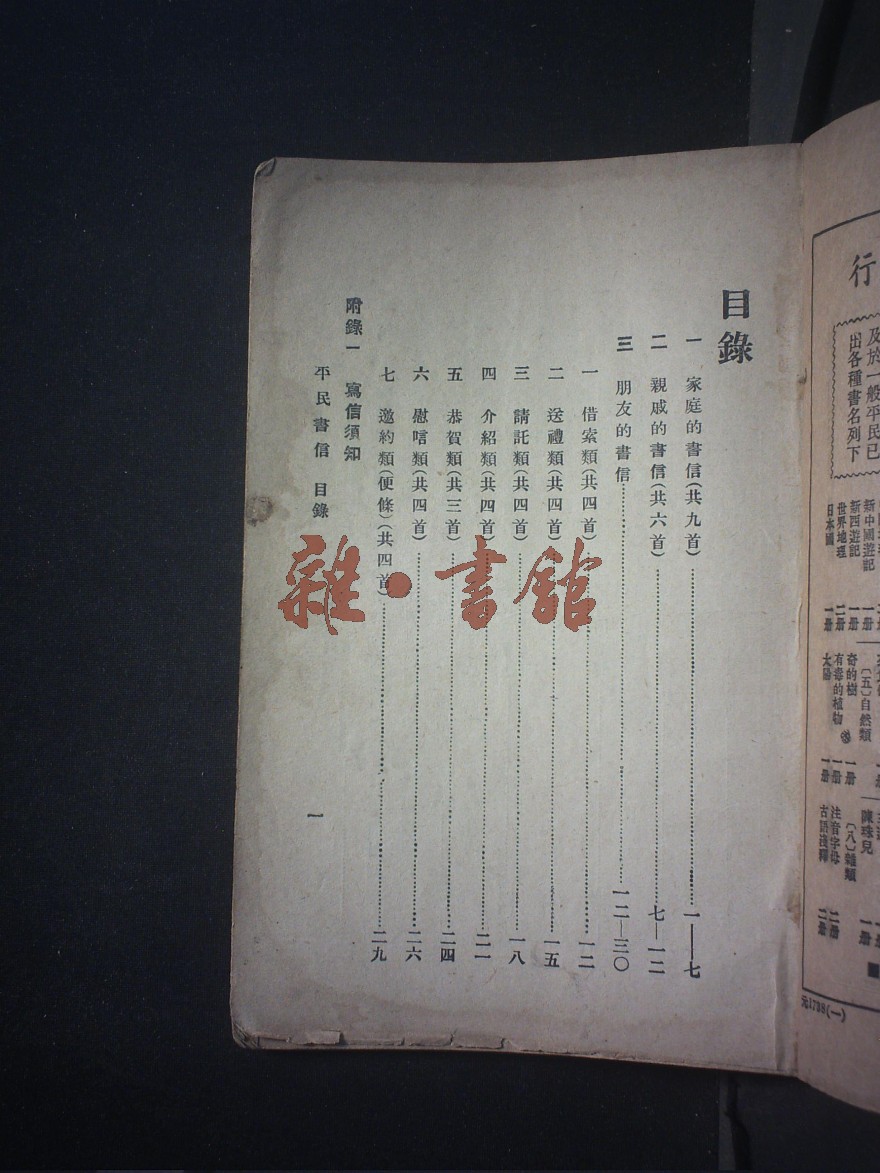 目錄
一 家庭的書信(共九首)…………一——七
二 親戚的書信(共六首)…………七—一二
三 朋友的書信…………一二—三〇
一 借索類(共四首)…………一二
二 送禮類(共四首)…………一五
三 請託類(共四首)…………一八
四 介紹類(共四首)…………二一
五 恭賀類(共三首)…………二四
六 慰唁類(共四首)…………二六
七 邀約類(便條)(共四首)…………二九
附錄一 寫信須知
平民書信 目錄
一
雜·書館
行
及於一般平民已
出各種書名列下
新中國遊記 一册
新西遊記 一册
世界地理 二册
日本國 一册
(五)自然類
奇的樹 一册
有毒的植物 一册
太陽 一册
陳珠兒 一册
(八)雜類
注音字母 二册
古語淺釋 二册
元1798(一)